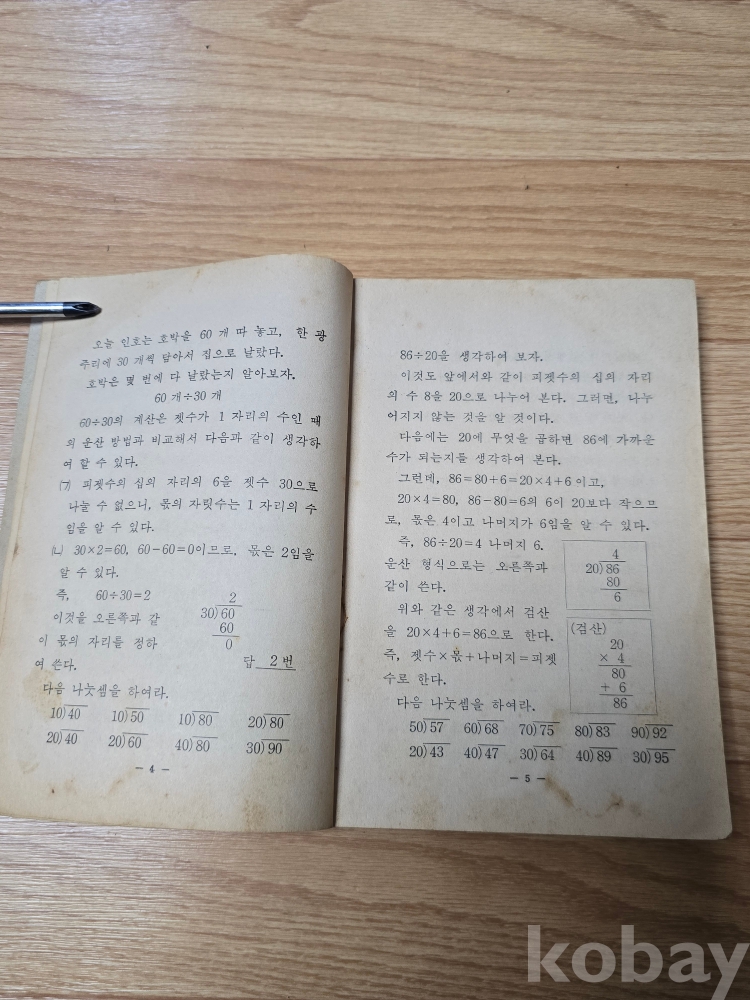 오늘 인호는 호박을 60 개 따 놓고, 한 광
주리에 30 개씩 담아서 집으로 날랐다.
호박은 몇 번에 다 날랐는지 알아보자.
60 개÷30 개
60÷30의 계산은 젯수가 1 자리의 수인 때
의 운산 방법과 비교해서 다음과 같이 생각하
여 할 수 있다.
(ㄱ) 피젯수의 십의 자리의 6을 젯수 30으로
나눌 수 없으니, 몫의 자릿수는 1 자리의 수
임을 알 수 있다.
(ㄴ) 30×2=60, 60-60=0이므로, 몫은 2임을
알 수 있다.
즉, 60÷30=2
이것을 오른쪽과 같
이 몫의 자리를 정하
여 쓴다.
2
30)60
60
0
답 2 번
다음 나눗셈을 하여라.
10)40 10)50 10)80 20)80
20)40 20)60 40)80 30)90
- 4 -
86÷20을 생각하여 보자.
이것도 앞에서와 같이 피젯수의 십의 자리
의 수 8을 20으로 나누어 본다. 그러면, 나누
어지지 않는 것을 알 것이다.
다음에는 20에 무엇을 곱하면 86에 가까운
수가 되는지를 생각하여 본다.
그런데, 86=80+6=20×4+6이고,
20×4=80, 86-80=6의 6이 20보다 작으므
로, 몫은 4이고 나머지가 6임을 알 수 있다.
즉, 86÷20=4 나머지 6.
운산 형식으로는 오른쪽과
같이 쓴다.
4
20)86
80
6
위와 같은 생각에서 검산
을 20×4+6=86으로 한다.
즉, 젯수×몫+나머지=피젯
수로 한다.
(검산)
20
× 4
80
+ 6
86
다음 나눗셈을 하여라.
50)57 60)68 70)75 80)83 90)92
20)43 40)47 30)64 40)89 30)95
- 5 -
kobay